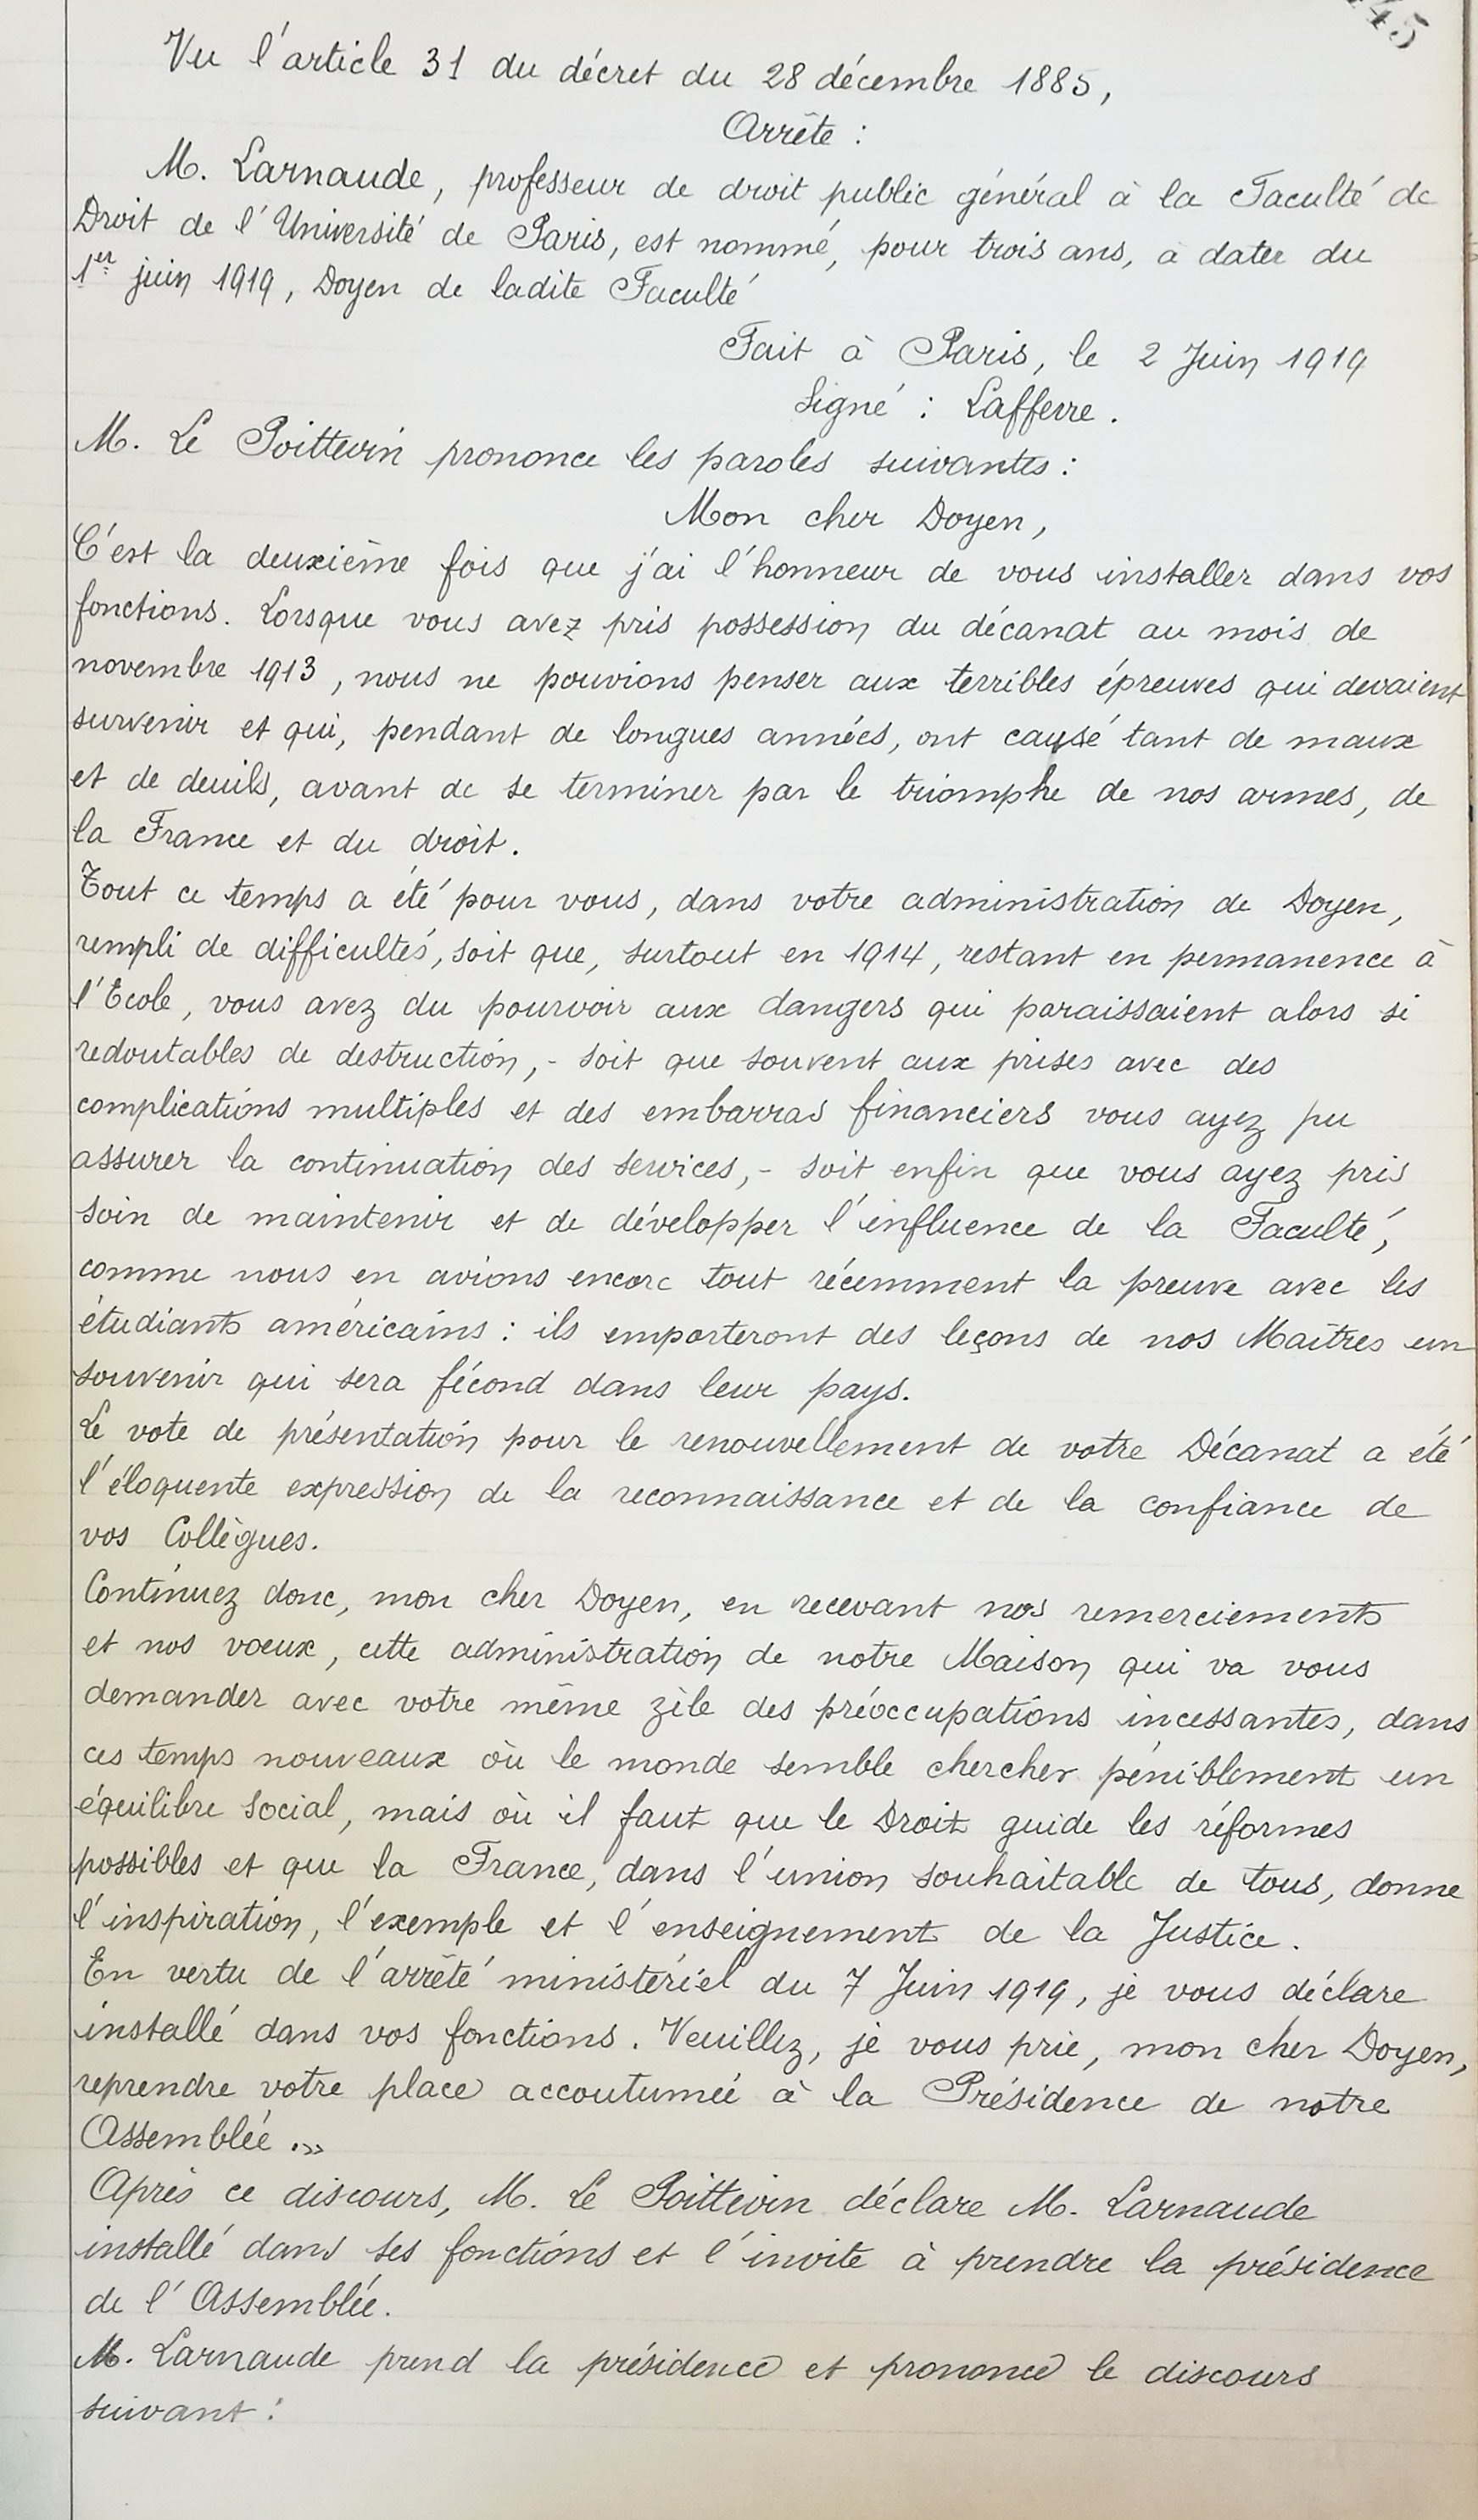 45
Vu l'article 31 du décret du 28 décembre 1885,
Arrête :
M. Larnaude, professeur de droit public général à la Faculté de
Droit de l'Université de Paris, est nommé, pour trois ans, à dater du
1er juin 1919, Doyen de ladite Faculté
Fait à Paris, le 2 Juin 1919
Signé : Lafferre.
M. Le Poittevin prononce les paroles suivantes :
Mon cher Doyen,
C'est la deuxième fois que j'ai l'honneur de vous installer dans vos
fonctions. Lorsque vous avez pris possession du décanat au mois de
novembre 1913, nous ne pouvions penser aux terribles épreuves qui devaient
survenir et qui, pendant de longues années, ont causé tant de maux
et de deuils, avant de se terminer par le triomphe de nos armes, de
la France et du droit.
Tout ce temps a été pour vous, dans votre administration de Doyen,
rempli de difficultés, soit que, surtout en 1914, restant en permanence à
l'Ecole, vous avez du pourvoir aux dangers qui paraissaient alors si
redoutables de destruction, - soit que souvent aux prises avec des
complications multiples et des embarras financiers vous ayez pu
assurer la continuation des services, - soit enfin que vous ayez pris
soin de maintenir et de développer l'influence de la Faculté,
comme nous en avions encore tout récemment la preuve avec les
étudiants américains : ils emporteront des leçons de nos Maîtres un
souvenir qui sera fécond dans leur pays.
Le vote de présentation pour le renouvellement de votre Décanat a été
l'éloquente expression de la reconnaissance et de la confiance de
vos Collègues.
Continuez donc, mon cher Doyen, en recevant nos remerciements
et nos voeux, cette administration de notre Maison qui va vous
demander avec votre même zèle des préoccupations incessantes, dans
ces temps nouveaux où le monde semble chercher péniblement un
équilibre social, mais où il faut que le Droit guide les réformes
possibles et que la France, dans l'union souhaitable de tous, donne
l'inspiration, l'exemple et l'enseignement de la Justice.
En vertu de l'arrêté ministériel du 7 Juin 1919, je vous déclare
installé dans vos fonctions. Veuillez, je vous prie, mon cher Doyen,
reprendre votre place accoutumée à la Présidence de notre
Assemblée.»
Après ce discours, M. Le Poittevin déclare M. Larnaude
installé dans ses fonctions et l'invite à prendre la présidence
de l'Assemblée.
M. Larnaude prend la présidence et prononce le discours
suivant :